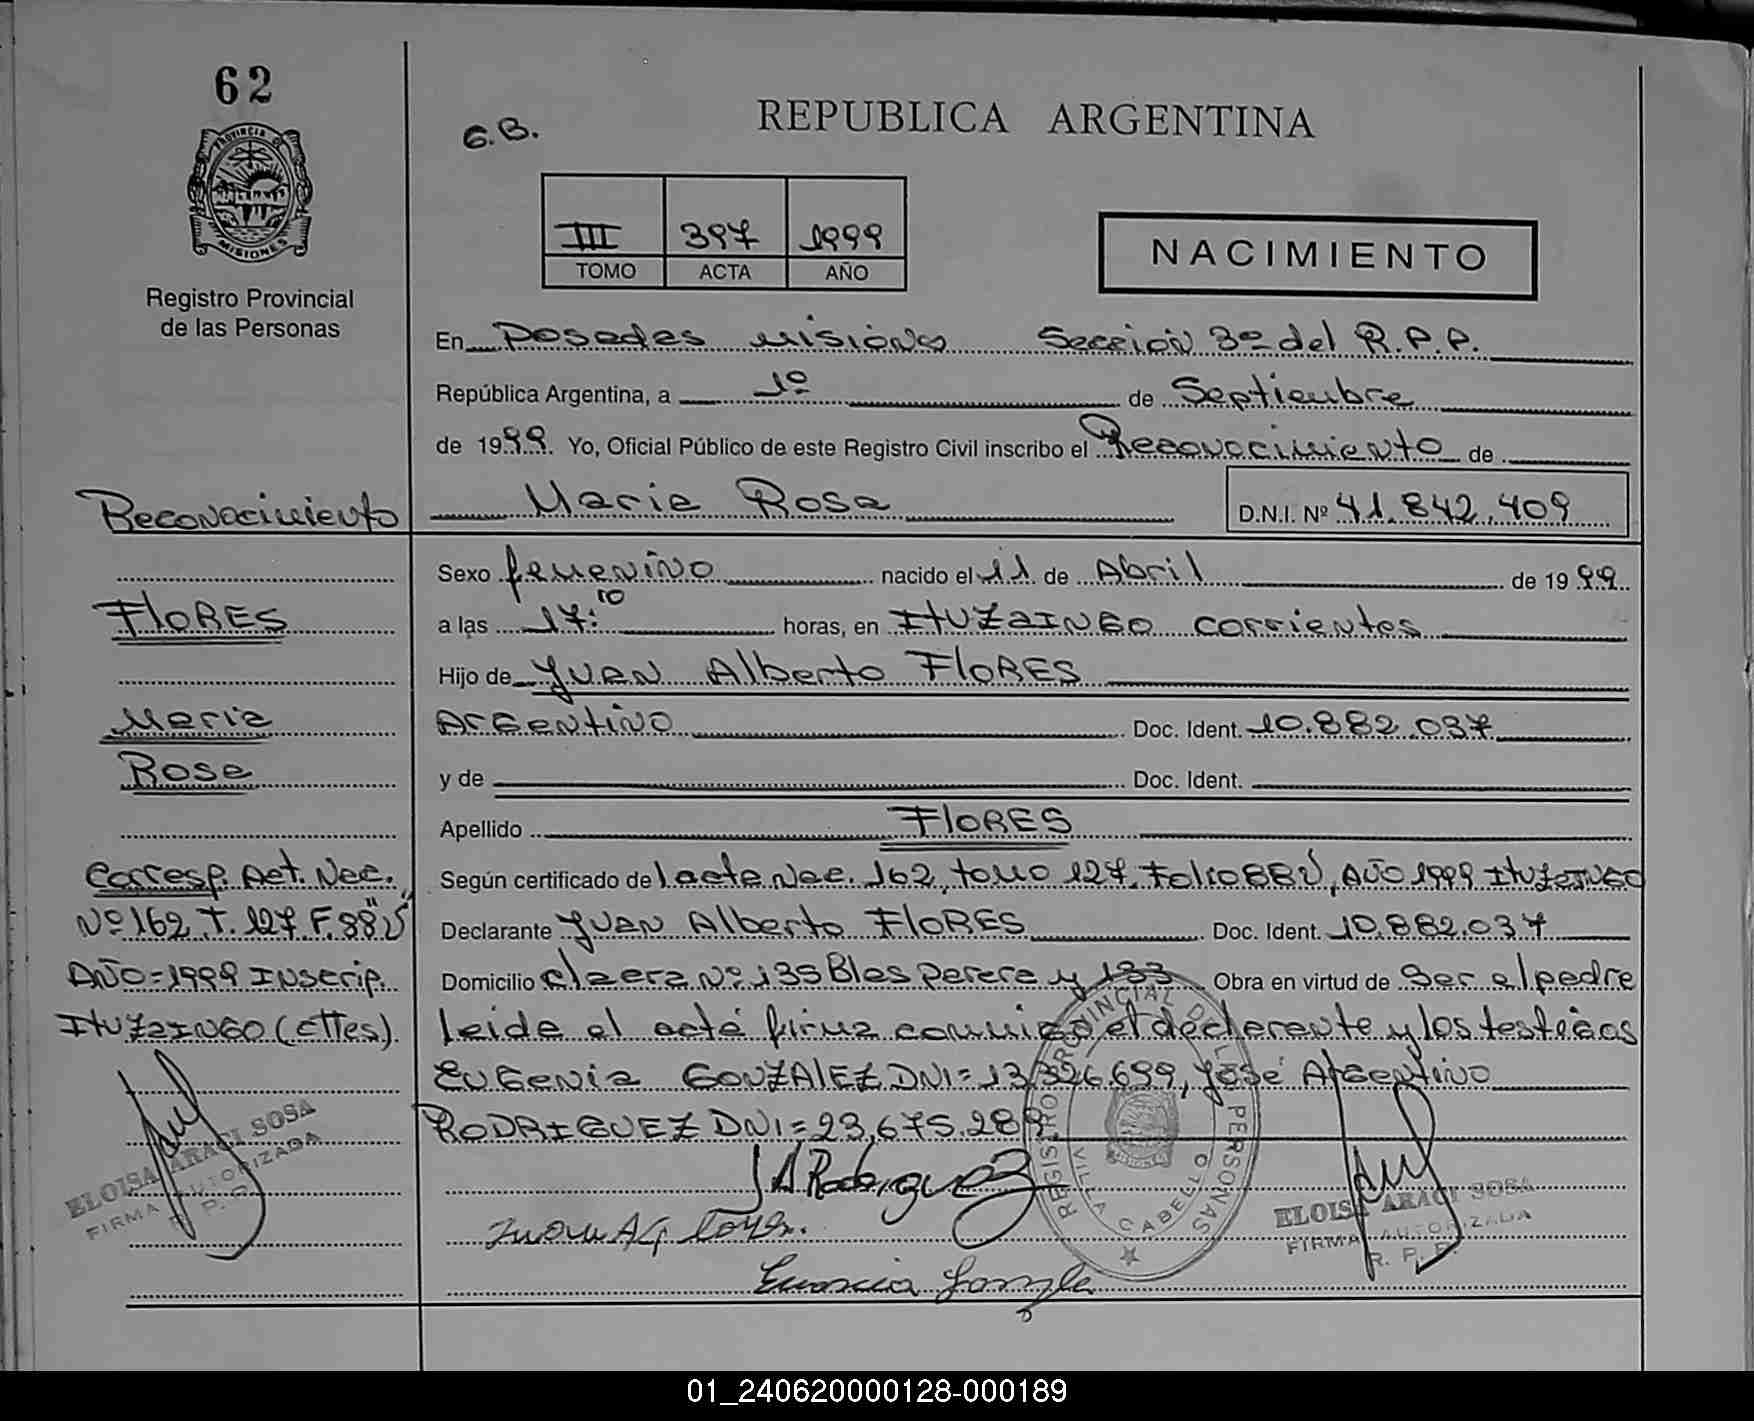 62
PROVINCIA DE
MISIONES
Registro Provincial
de las Personas
G.B.
REPUBLICA ARGENTINA
III 397 1999
TOMO ACTA AÑO
NACIMIENTO
En Posadas Misiones Sección 3º del R.P.P.
República Argentina, a 1º de Septiembre
de 1999. Yo, Oficial Público de este Registro Civil inscribo el Reconocimiento de
Maria Rosa D.N.I. Nº 41.842.409
Sexo femenino nacido el 11 de Abril de 1999
a las 17:10 horas, en ITUZAINGO Corrientes
Hijo de Juan Alberto FLORES
Argentino Doc. Ident. 10.882.037
y de Doc. Ident.
Apellido FLORES
Según certificado de l acta Nac. 162, tomo 127, Folio 88V, AÑO 1999 ITUZAINGO
Declarante Juan Alberto FLORES Doc. Ident. 10.882.037
Domicilio Nº 135 Blas Parera y 133 Obra en virtud de Ser el padre
leida el acta firma conmigo el declarante y los testigos
Eugenia GONZALEZ DNI=13.326.699, José Argentino
RODRIGUEZ DNI=23,675.289
Reconocimiento
FLORES
Maria
Rosa
Corresp. Act. Nac.
Nº 162 T. 127 F. 88"V"
AÑO=1999 Inscrip.
ITUZAINGO (Ctes).
ELOISA ARACI SOSA
FIRMA AUTORIZADA
R. P. P.
J A Rodriguez
REGISTRO PROVINCIAL DE LAS PERSONAS
MISIONES
VILLA CABELLO
ELOISA ARACI SOSA
FIRMA AUTORIZADA
R. P. P.
01_240620000128-000189